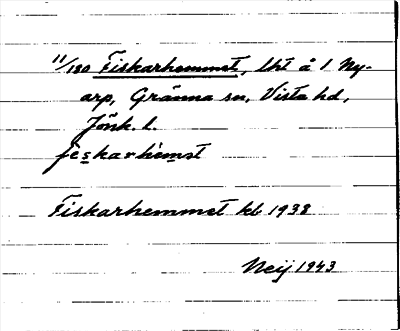 11/130 Fiskarhemmet, lht å 1 Ny-
arp, Gränna sn, Vista hd,
Jönk. l.
feskarhemst
Fiskarhemmet kb 1938
Neij 1943